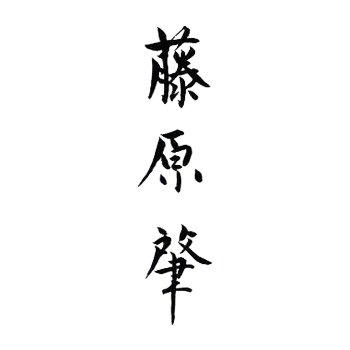 藤原肇